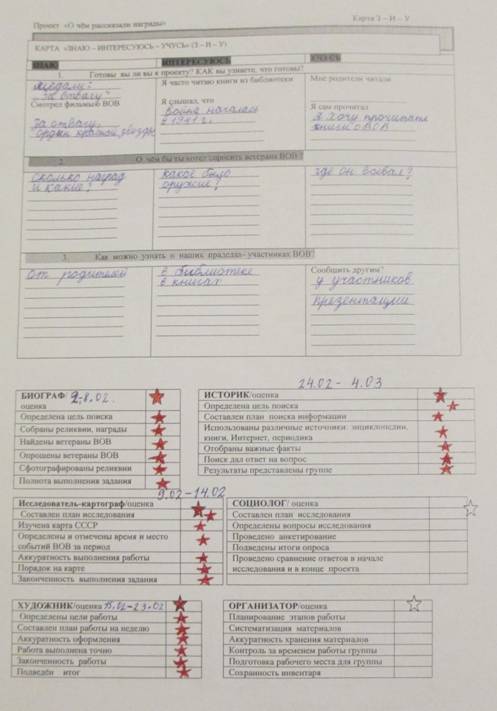 Проект «О чём рассказали награды»
Карта З – И – У
КАРТА «ЗНАЮ – ИНТЕРЕСУЮСЬ – УЧУСЬ» (З – И – У)
ЗНАЮ
ИНТЕРЕСУЮСЬ
1. Готовы ли вы к проекту? КАК вы узнаете, что готовы?
"За отвагу"
Смотрел фильмы ВОВ
За отвагу.
Орден красной звезды
Я часто читаю книги из библиотеки
Я слышал, что
война началась
в 1941 г.
Мне родители читали
Я сам прочитал
Я хочу прочитать
книги о ВОВ
2. О чём бы ты хотел спросить ветерана ВОВ?
Сколько наград
и какие?
Какое было
оружие?
где он воевал?
3. Как можно узнать о наших прадедах–участниках ВОВ?
от родителей
в библиотеке
в книгах
Сообщить другим?
у участников
презентации
БИОГРАФ/ 2-8.02.
оценка
Определена цель поиска
Собраны реликвии, награды
Найдены ветераны ВОВ
Опрошены ветераны ВОВ
Сфотографированы реликвии
Полнота выполнения задания
24.02 – 4.03
ИСТОРИК/оценка
Определена цель поиска
Составлен план поиска информации
Использованы различные источники: энциклопедии,
книги, Интернет, периодика
Отобраны важные факты
Поиск дал ответ на вопрос
Результаты представлены группе
9.02 – 14.02
Исследователь-картограф/оценка
Составлен план исследования
Изучена карта СССР
Определены и отмечены время и место
событий ВОВ за период
Аккуратность выполнения работы
Порядок на карте
Законченность выполнения задания
СОЦИОЛОГ/ оценка
Составлен план исследования
Определены вопросы исследования
Проведено анкетирование
Подведены итоги опроса
Проведено сравнение ответов в начале
исследования и в конце проекта
ХУДОЖНИК/оценка 15.02-23.02
Определены цели работы
Составлен план работы на неделю
Аккуратность оформления
Работа выполнена точно
Законченность работы
Подведён итог
ОРГАНИЗАТОР/оценка
Планирование этапов работы
Систематизация материалов
Аккуратность хранения материалов
Контроль за временем работы группы
Подготовка рабочего места для группы
Сохранность инвентаря